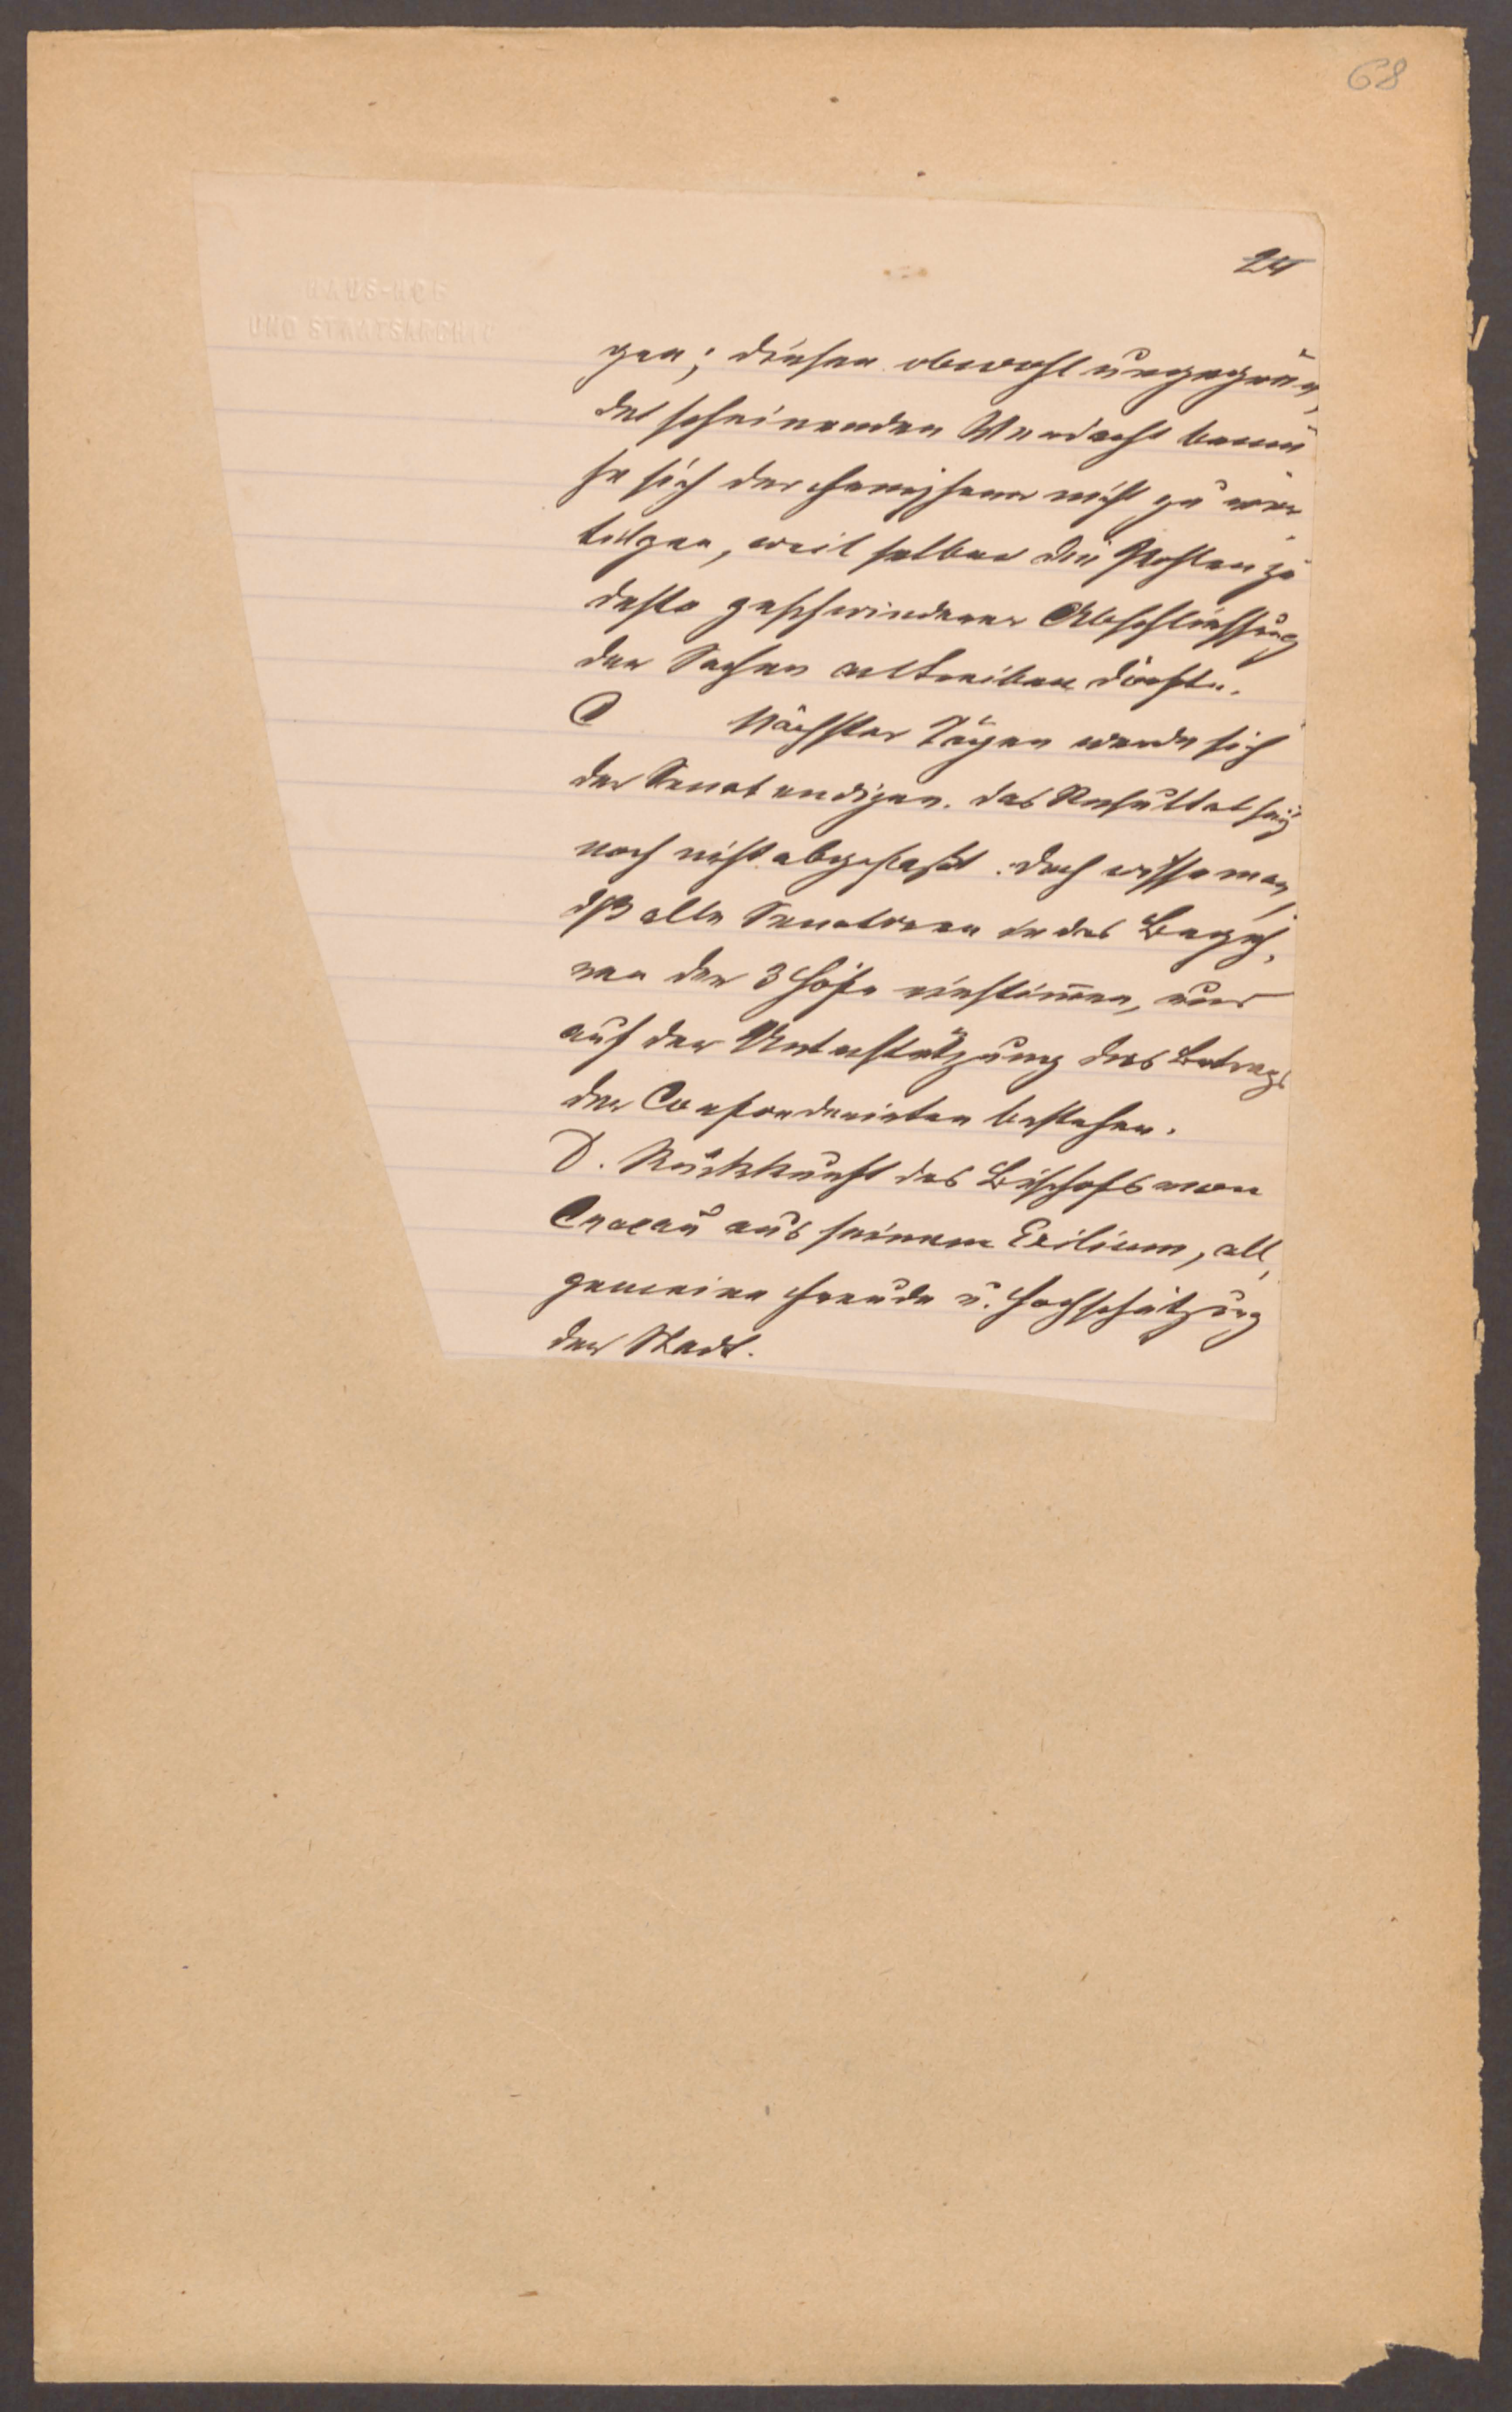 68
24
HAUS-HOF
UND STAATSARCHIV
gen; diesen obwohl ungegrün,
det scheinenden Verdacht bemü
he sich der nicht zu ver
tilgen, weil selber die Pohlen zu
desto geschwinderer Abschließung
der Sachen antreiben dörfte.
C Nächster Tägen werde sich
der Senat endigen. das Resultat sey
noch nicht abgefaßt. doch wisse man,
dß alle Senatoren in das Begeh,
ren der 3 Höfe einstimen, nur
auf der Unterstützung des Betrags
der Confoederirten bestehen.
D. Rückkunft des Bischofs von
Cracau aus seinem Exilium, all,
gemeine Freude u. Hochschätzung
der Stadt.